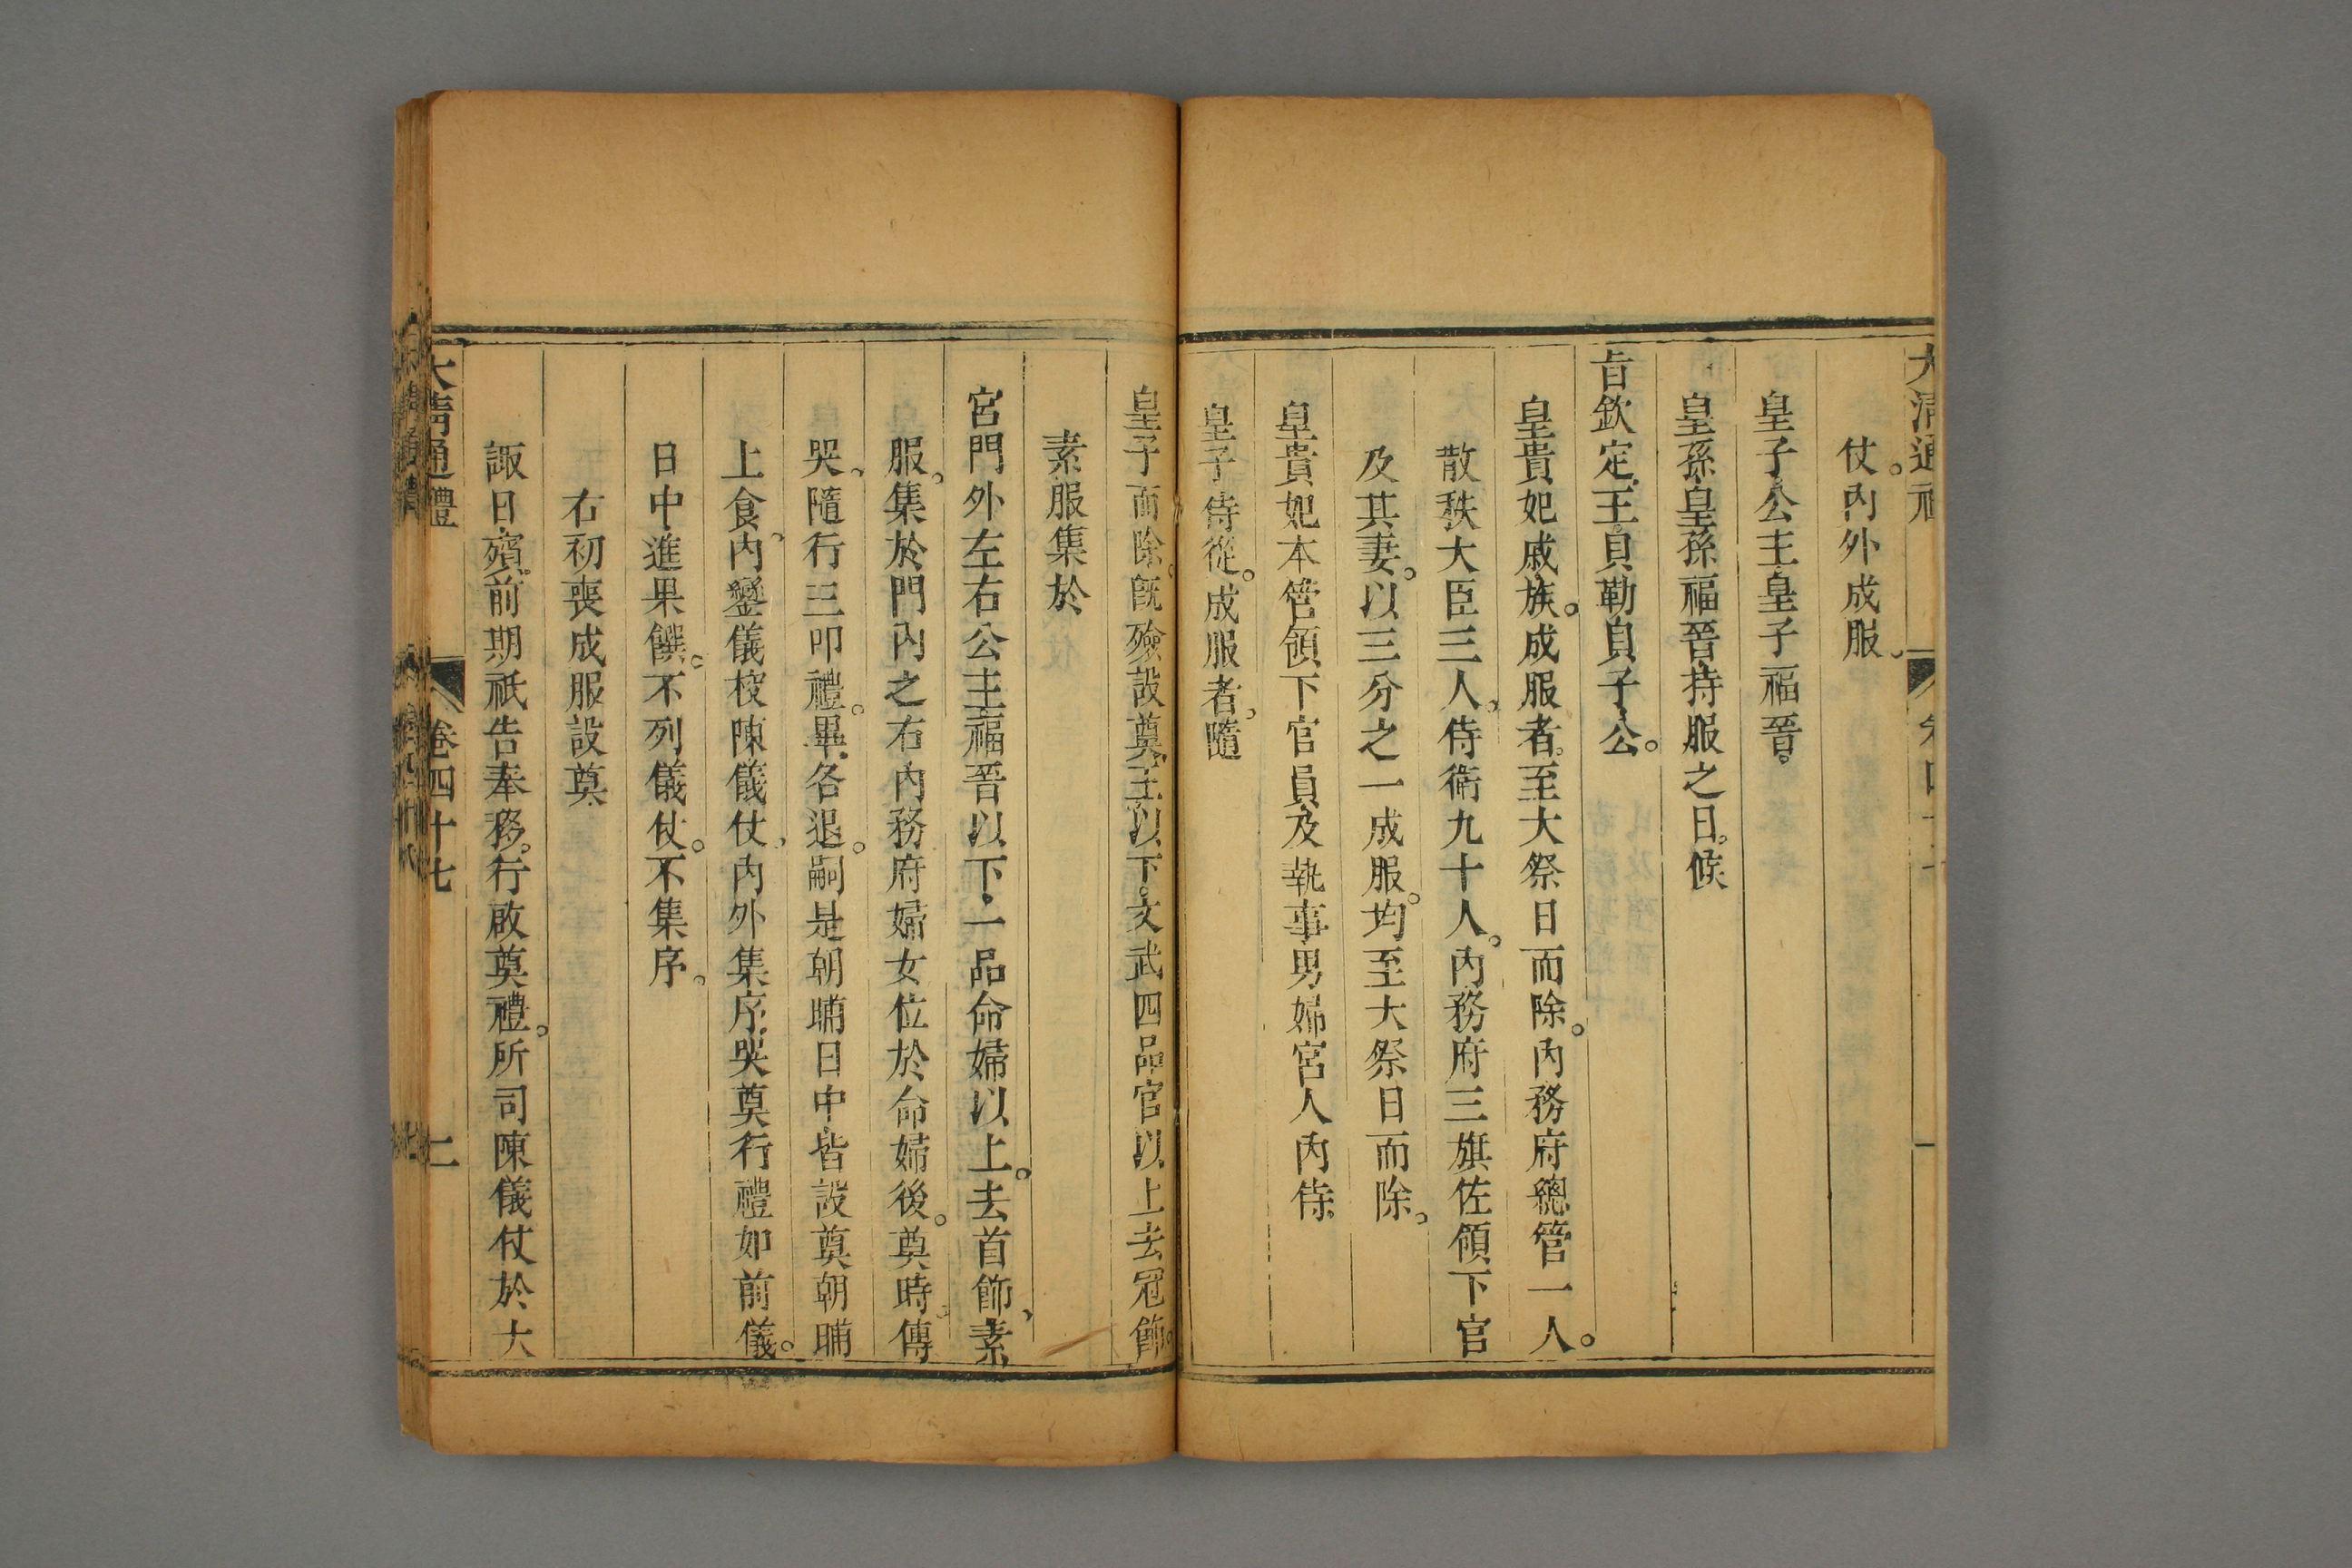 仗。內外成服。
皇子公主皇子福晉。
皇孫皇孫福晉持服之日。候
旨欽定。王貝勒貝子公。
皇貴妃戚族。成服者。至大祭日而除。內務府總管一人。
散秩大臣三人。侍衞九十人。內務府三旗佐領下官
及其妻。以三分之一成服。均至大祭日而除。
皇貴妃本管領下官員及執事男婦宮人內侍。
皇子侍從。成服者。隨
皇子而除。旣殮設奠。王以下。文武四品官以上去冠飾。
素服集於
宮門外左右公主福晉以下。一品命婦以上。去首飾、素
服。集於門內之右內務府婦女位於命婦後。奠時。傳
哭、隨行三叩禮。畢。各退。嗣是朝晡日中皆設奠朝晡
上食、內鑾儀校陳儀仗、內外集序。哭奠行禮如前儀。
日中進果饌。不列儀仗。不集序。
右初喪成服設奠
諏日殯。前期祇告奉移。行啟奠禮。所司陳儀仗於大
大清通禮 卷四十七 二